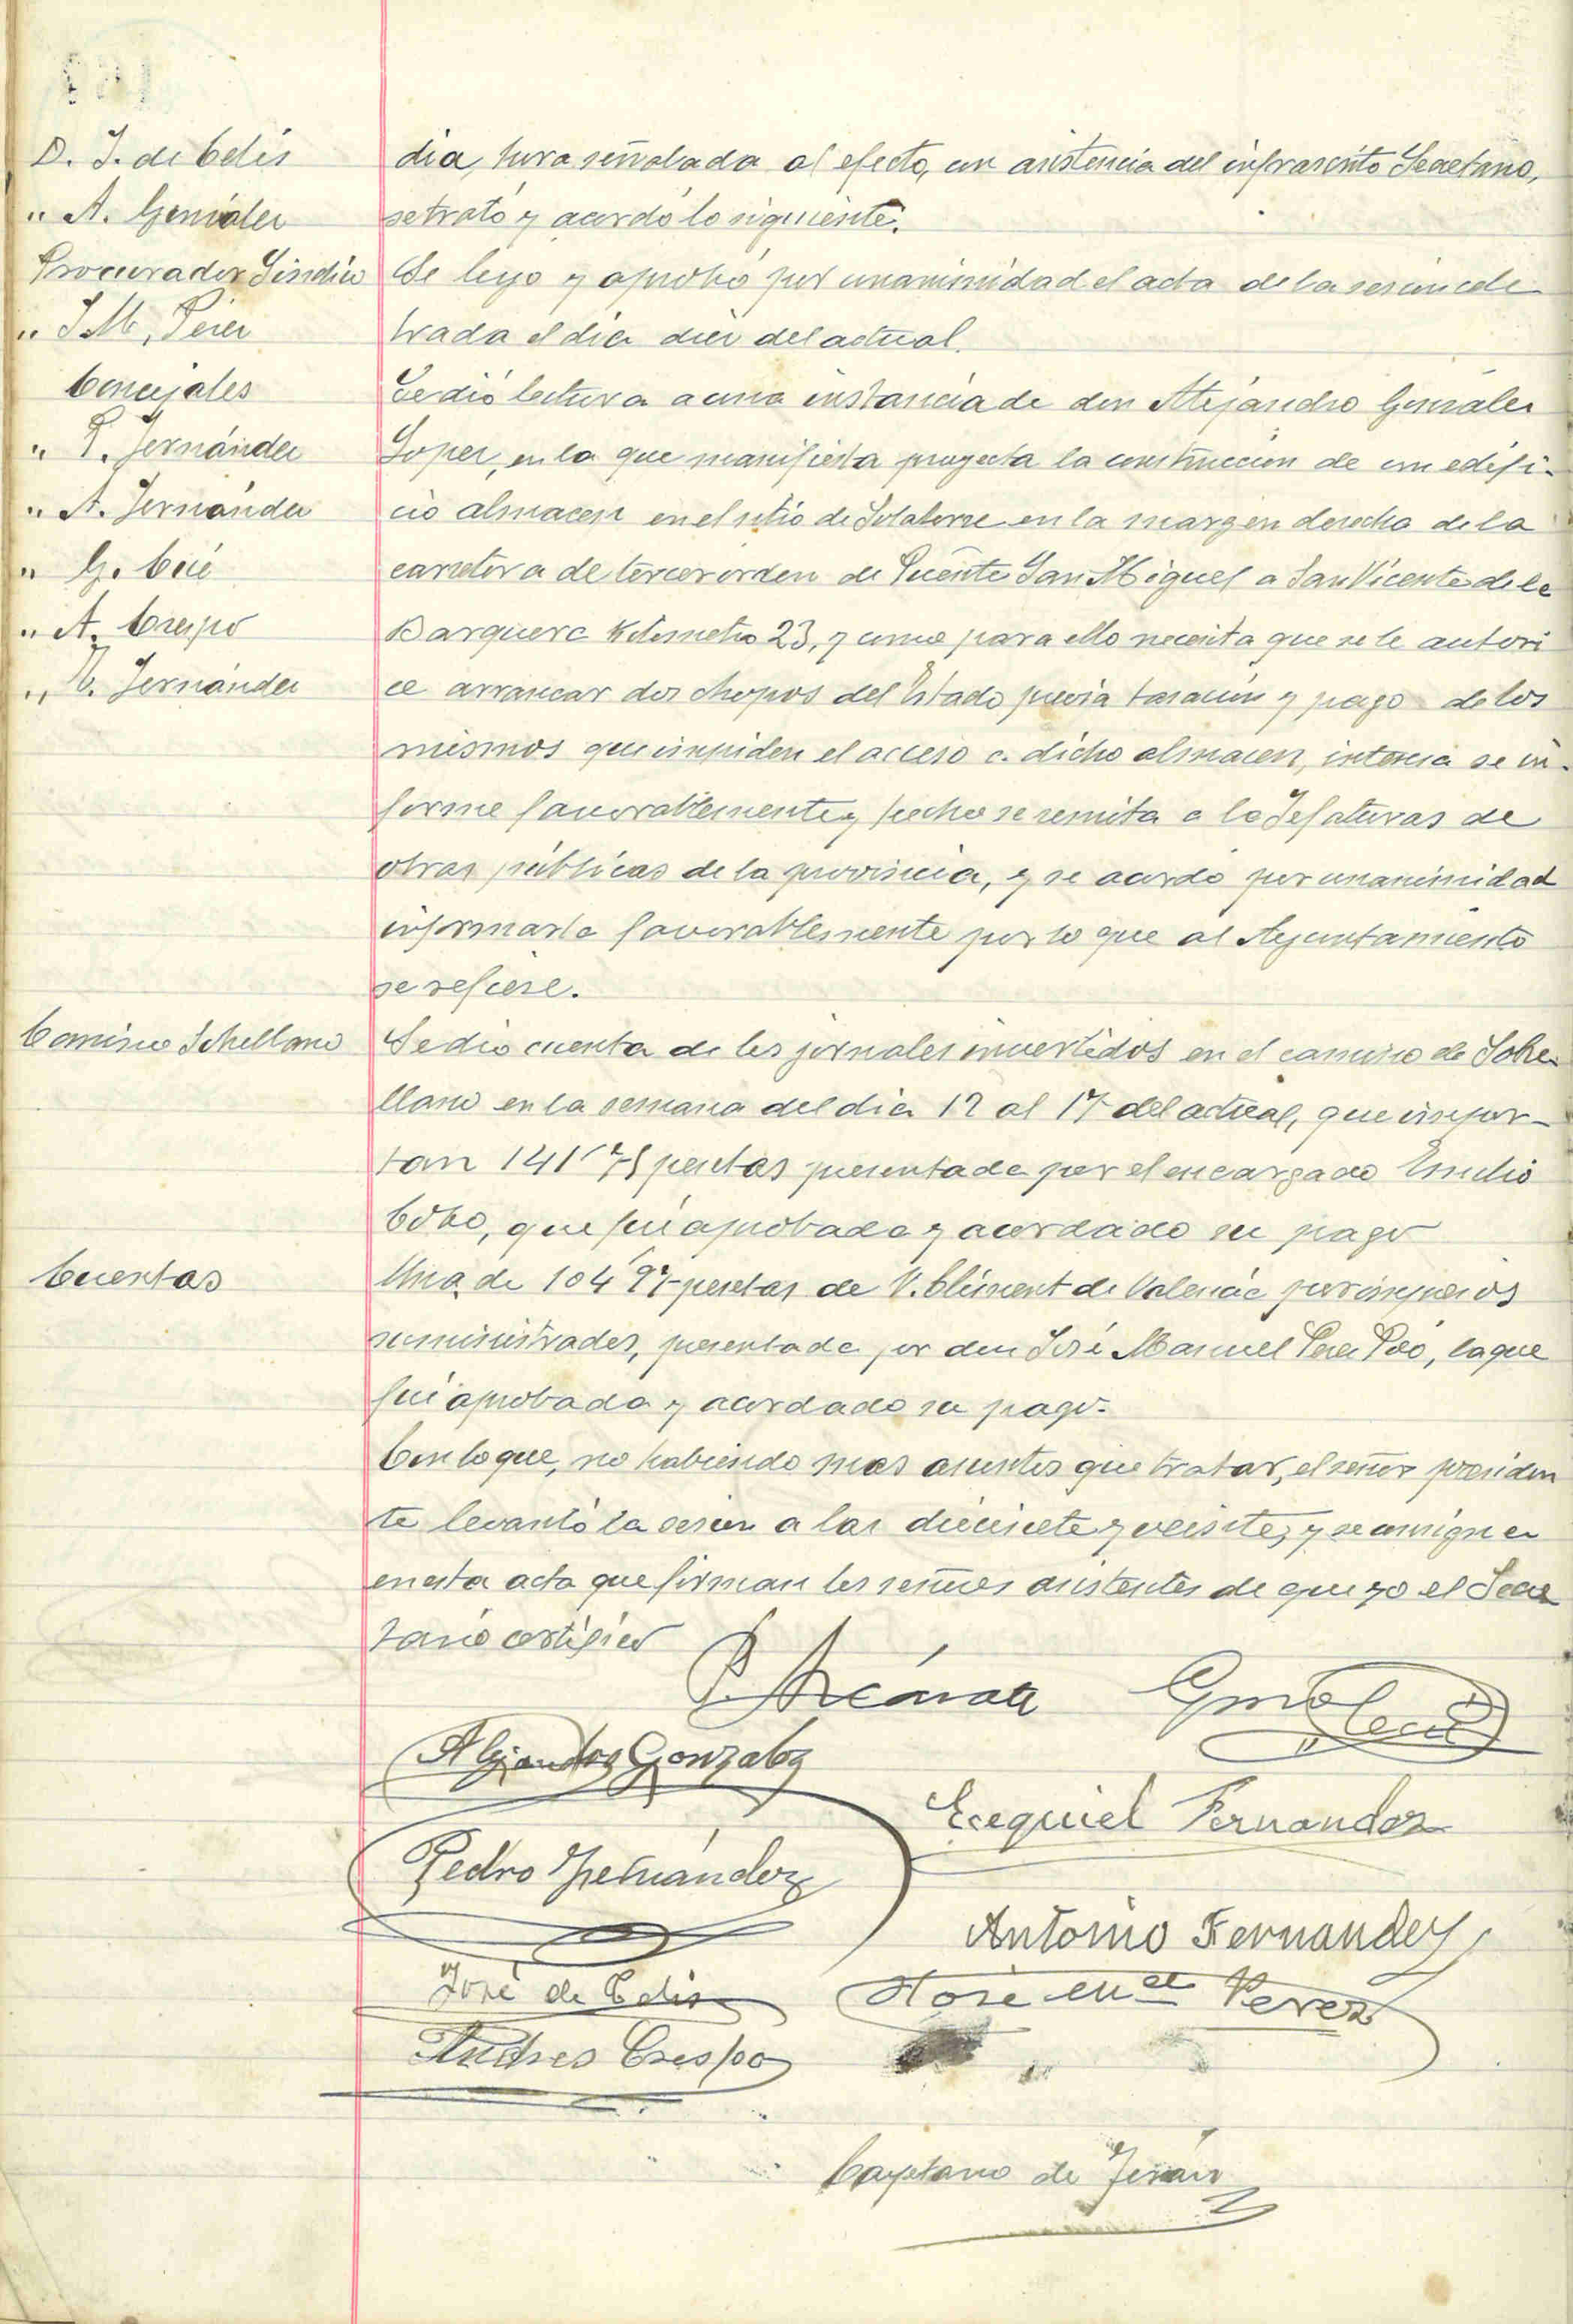 D. J. de Celis
" A. González
Procurador Sindico
" J. M. Pérez
Concejales
" P. Fernández
" A. Fernández
" G. Cué
" A. Crespo
" E. Fernández
dia, hora señalada al efecto, con asistencia del infrascrito Secretario,
se trató y acordó lo siguiente.
Se leyó y aprobó por unanimidad el acta de la sesión cele
brada el dia diez del actual.
Se dió lectura a una instancia de don Alejandro González
Lopez, en la que manifiesta proyecta la construcción de un edifi-
cio almacen en el sitio de en la margen derecha de la
carretera de tercer orden de Puente San Miguel a San Vicente de la
Barquera Kilometro 23, y como para ello necesita que se le autori
ce arrancar dos chopos del Estado previa tasación y pago de los
mismos que impiden el acceso a dicho almacen, interesa se in-
forme favorablemente y hecho se remita a la Jefaturas de
obras públicas de la provincia, y se acordó por unanimidad
informarla favorablemente por lo que al Ayuntamiento
se refiere.
Camino Sobrellano
Se dió cuenta de los jornales invertidos en el camino de Sobre
llano en la semana del dia 12 al 17 del actual, que impor-
tan 141'75 pesetas presentada por el encargado Emilio
Cobo, que fué aprobada y acordado su pago
Cuentas
Una de 104'97 pesetas de V. Climent de Valencia por impresos
suministrados, presentada por don José Manuel Perez Poo, la que
fué aprobada y acordado su pago.
Con lo que, no habiendo mas asuntos que tratar, el señor presiden
te levantó la sesion a las diecisiete y veinte, y se consigna en
en esta acta que firman los señores asistentes de que yo el Secre
tario certifico
P. Azcárate
Alejandro Gonzalez
Ezequiel Fernandez
Pedro Fernández
Antonio Fernandez
José de Celis
Jose Ml Perez
Andres Crespo
Cayetano de Terán